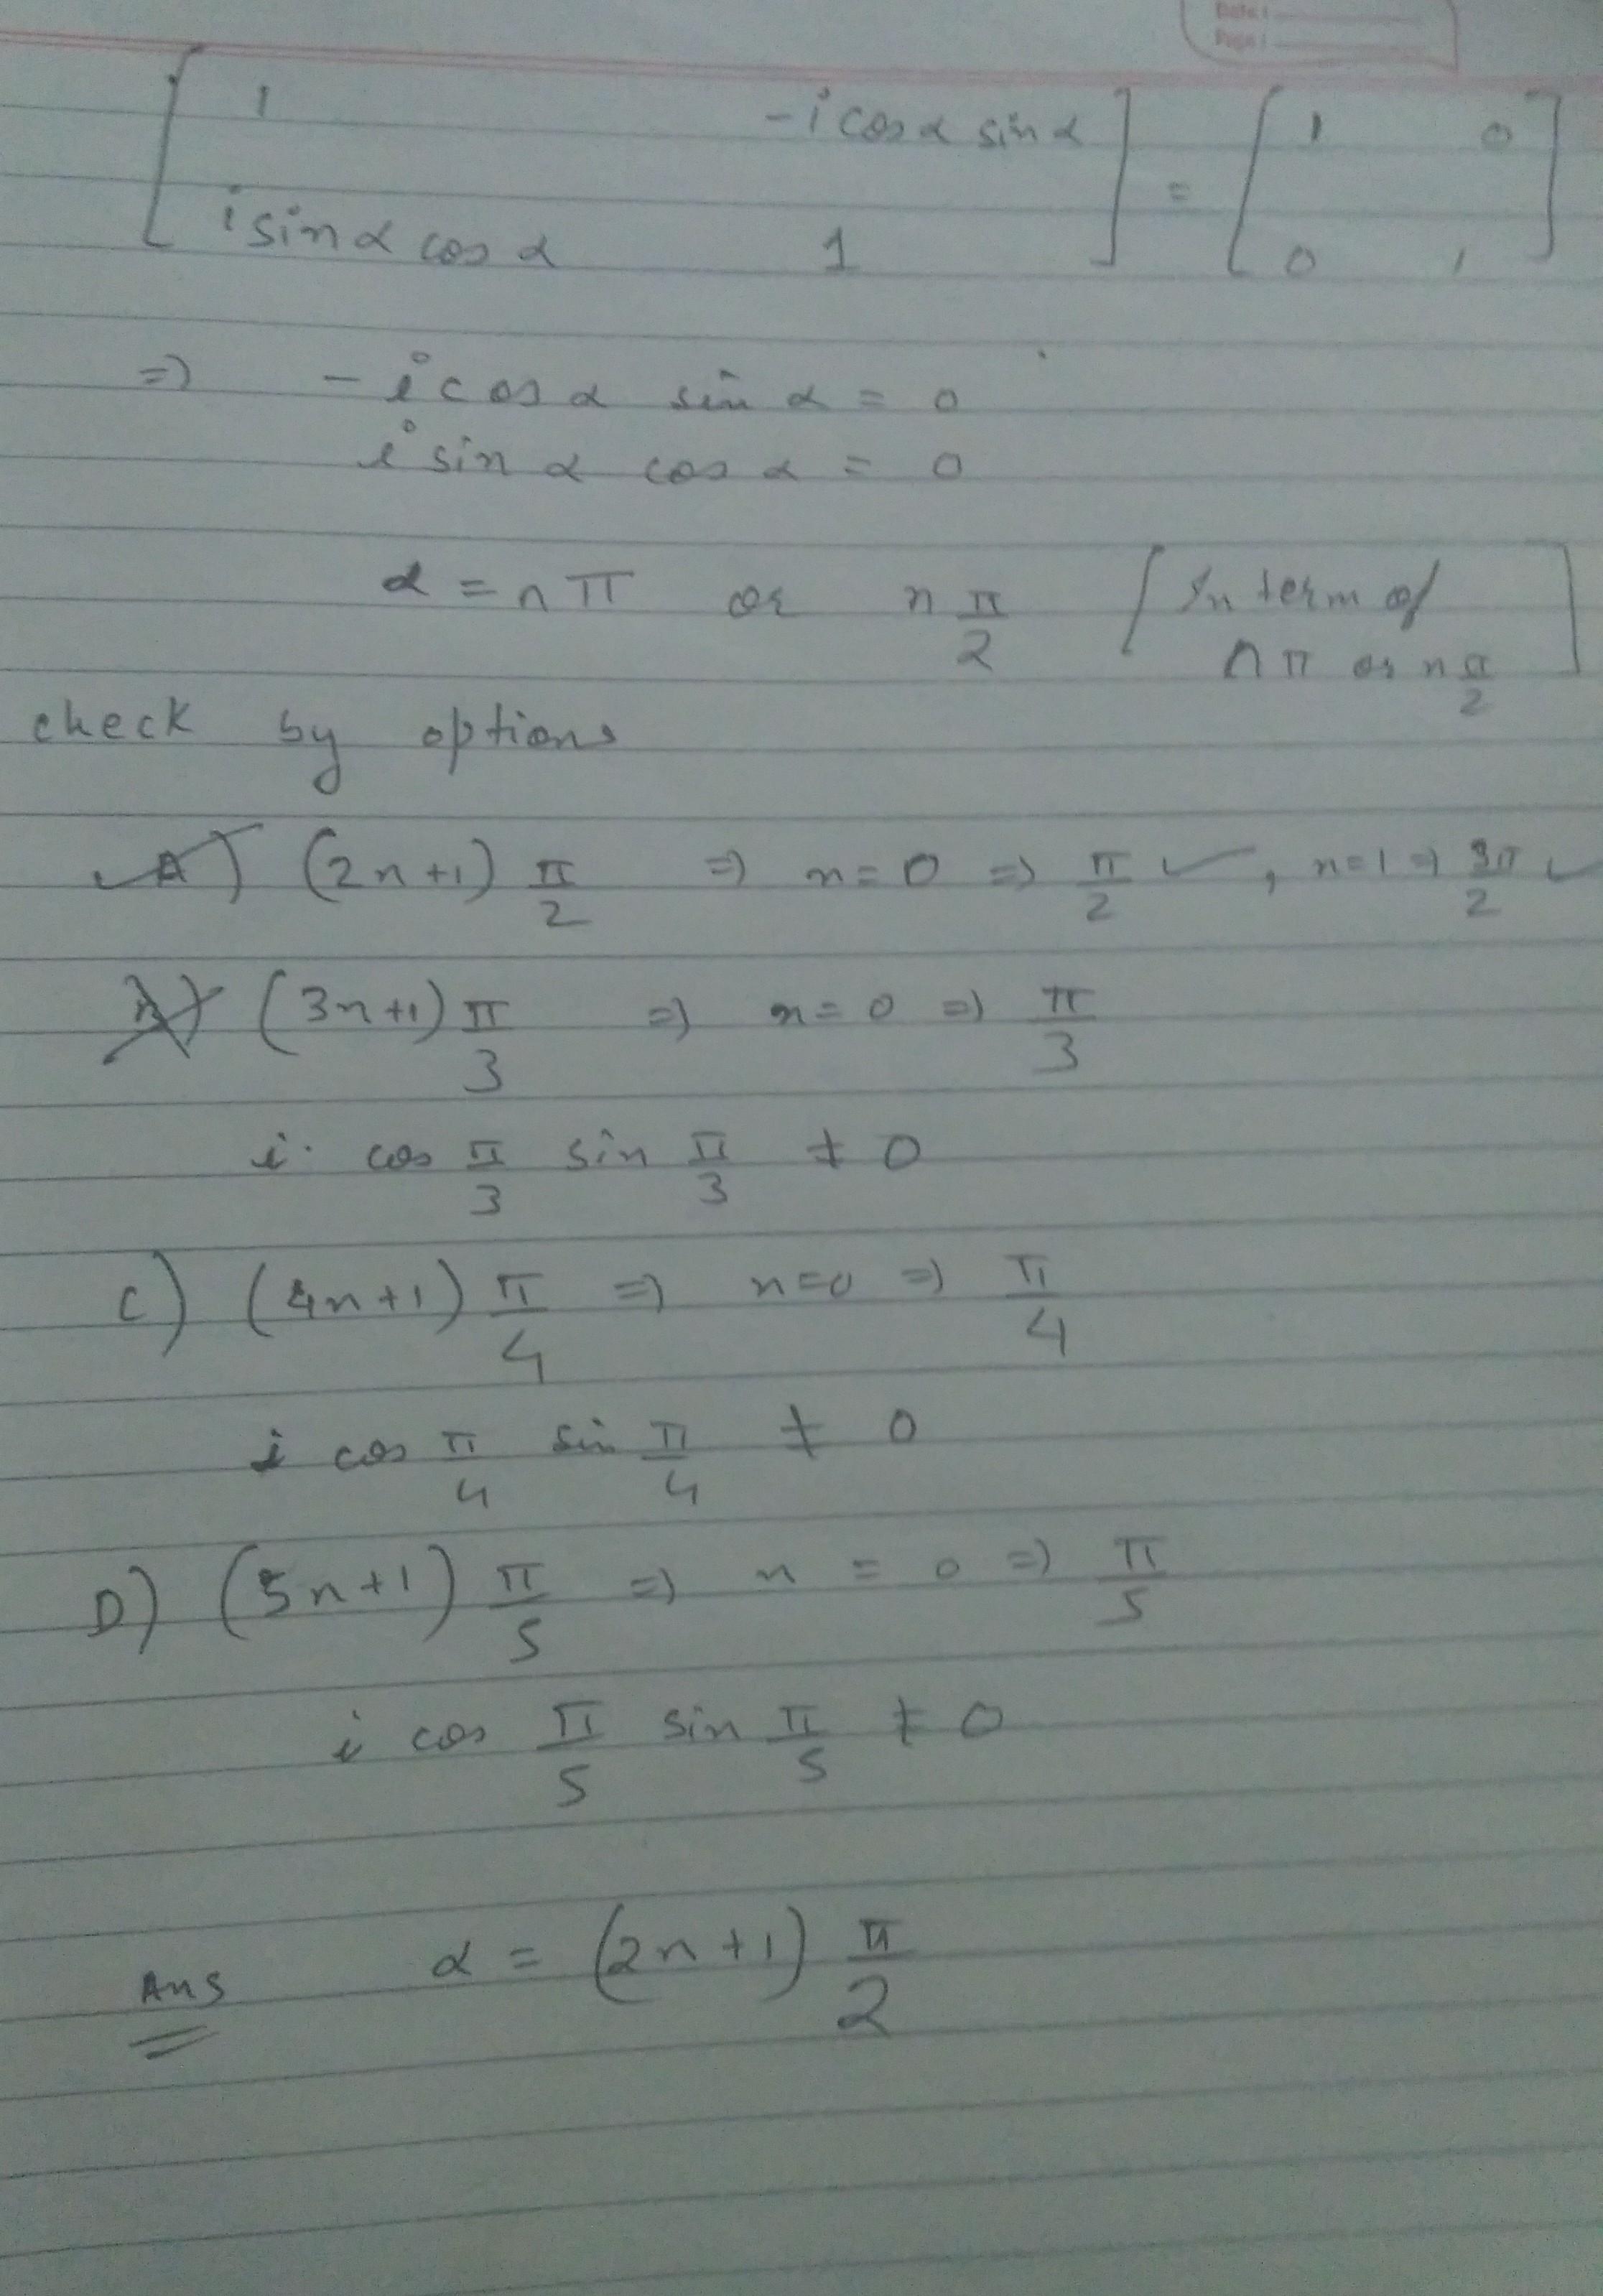 Date :
Page :
[ 1 -i cos α sin α ] = [ 1 0 ]
[ i sin α cos α 1 ] [ 0 1 ]
=) - i cos α sin α = 0
i sin α cos α = 0
α = n π or n π/2 [ In term of
n π or n π/2 ]
check by options
A) (2n+1) π/2 =) n = 0 =) π/2 ✓, n=1 =) 3π/2 ✓
(3n+1) π/3 =) n = 0 =) π/3
i. cos π/3 sin π/3 ≠ 0
C) (4n+1) π/4 =) n=0 =) π/4
i cos π/4 sin π/4 ≠ 0
D) (5n+1) π/5 =) n = 0 =) π/5
i cos π/5 sin π/5 ≠ 0
Ans α = (2n+1) π/2